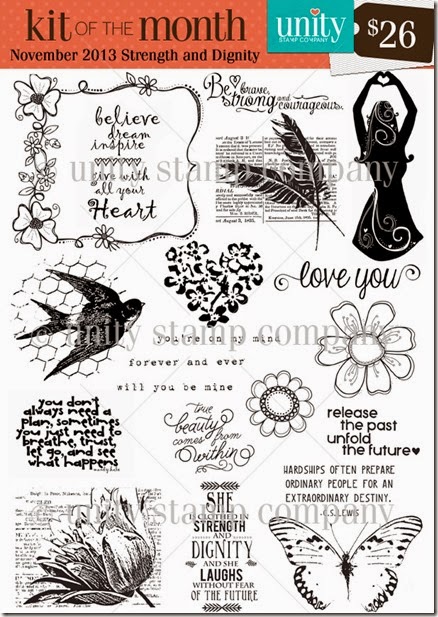 kit OF THE month
November 2013 Strength and Dignity
unity
STAMP COMPANY
$26
believe
dream
inspire
live with
all your
Heart
Be brave,
strong and
courageous.
© unity stamp company
love you
© unity stamp company
you're on my mind
forever and ever
will you be mine
you don't
always need a
plan, sometimes
you just need to
breathe, trust,
let go, and see
what happens
true
beauty
comes from
within
release
the past
unfold
the future♥
HARDSHIPS OFTEN PREPARE
ORDINARY PEOPLE FOR AN
EXTRAORDINARY DESTINY.
-C.S. LEWIS
© unity stamp company
SHE
IS CLOTHED IN
STRENGTH
AND
DIGNITY
AND SHE
LAUGHS
WITHOUT FEAR
OF THE FUTURE